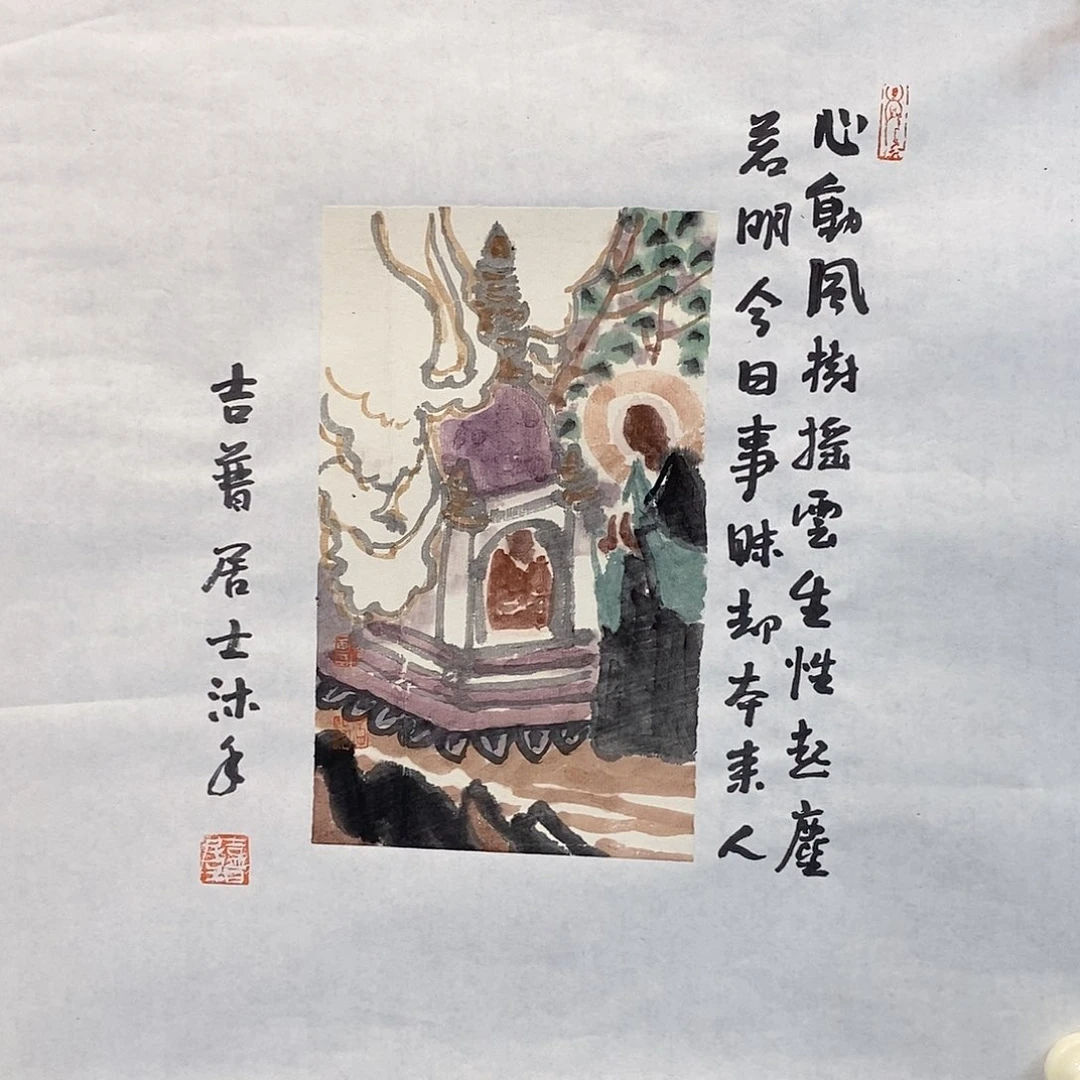 心動風樹搖雲生性起塵
若明今日事昧却本来人
吉普居士沐手